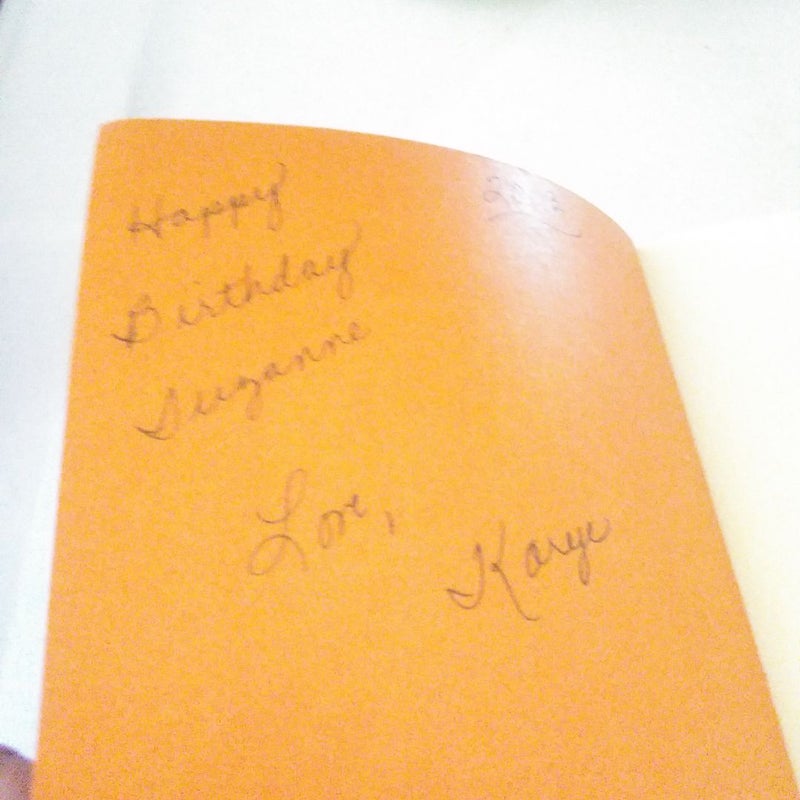 Happy
Birthday
Suzanne
Love,
Karye